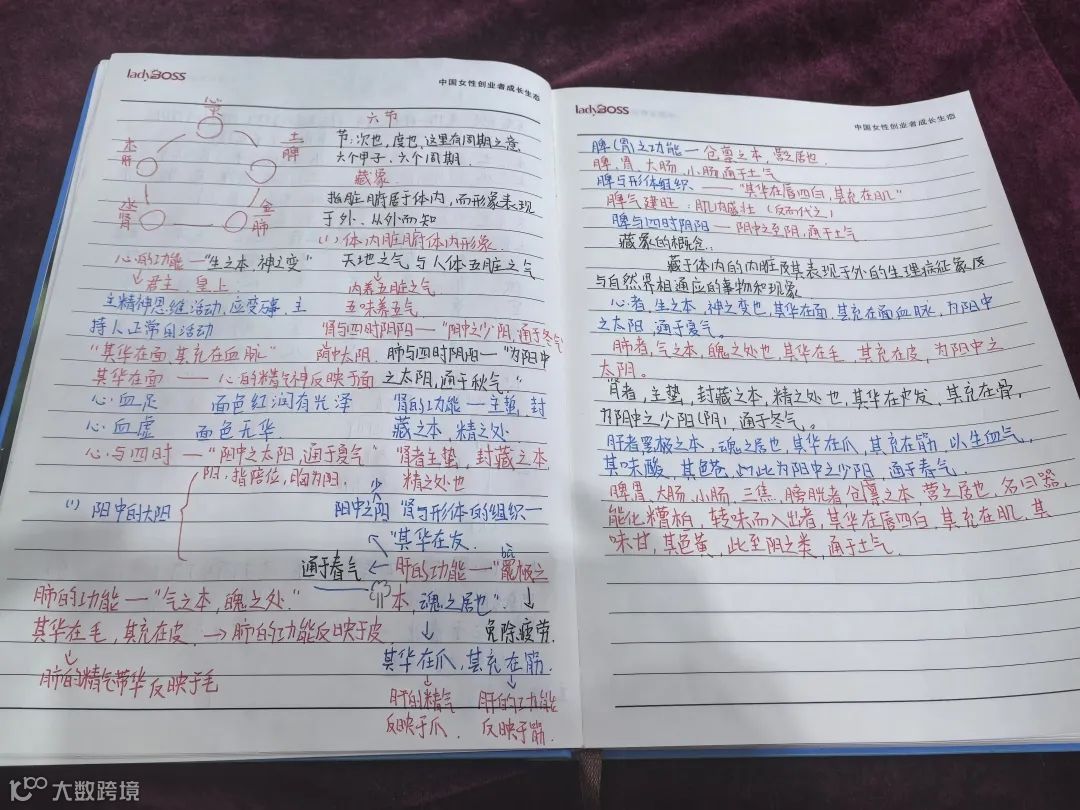 ladyBOSS
中国女性创业者成长生态
心
六节
木
肝
土
脾
水
肾
金
肺
节:次也,度也,这里有周期之意
六个甲子,六个周期
藏象
指脏腑居于体内,而形象表现
于外、从外而知
(1)体内脏腑体内形象
心的功能—"生之本,神之变"
天地之气与人体五脏之气
君主,皇上
内养五脏之气
主精神思维活动,应变万事,主
五味养五气
持人正常的活动
肾与四时阴阳—"阴中之少阴,通于冬气
"其华在面,其充在血脉"
阴中太阴
肺与四时阴阳—"为阳中
其华在面——心的精气神反映于面
之太阴,通于秋气。"
心血足 面色红润有光泽
肾的功能—主蛰,封
心血虚 面色无华
藏之本,精之处
心与四时—"阳中之太阳,通于夏气"
肾者主蛰,封藏之本,
阳:指部位,胸为阳.
精之处也
(1)阳中的太阳
阳中之少阳
肾与形体的组织—
"其华在发.
通于春气
肝的功能—"罢极之
本,魂之居也".
肺的功能—"气之本,魄之处."
免除疲劳.
其华在毛,其充在皮 →肺的功能反映于皮
其华在爪,其充在筋.
肺的精气带华反映于毛
肝的精气 肝的功能
反映于爪. 反映于筋.
ladyBOSS
中国女性创业者成长生态
脾(胃)之功能—仓廪之本,营之居也.
脾、胃、大肠、小肠通于土气
脾与形体组织.——"其华在唇四白,其充在肌"
脾气建旺:肌肉盛壮(反而代之)
脾与四时阴阳—阴中之至阴,通于土气
藏象的概念.
藏于体内的内脏及其表现于外的生理病征象及
与自然界相通应的事物和现象
心者,生之本,神之变也,其华在面,其充在面血脉,为阳中
之太阳,通于夏气。
肺者,气之本,魄之处也,其华在毛,其充在皮,为阳中之
太阴。
肾者,主蛰,封藏之本,精之处也,其华在发,其充在骨,
为阴中之少阳(阴),通于冬气。
肝者罢极之本,魂之居也,其华在爪,其充在筋,以生血气,
其味酸,其色苍,此为阳中之少阳,通于春气.
脾、胃、大肠、小肠、三焦、膀胱者,仓廪之本,营之居也,名曰器,
能化糟粕,转味而入出者,其华在唇四白,其充在肌,其
味甘,其色黄,此至阴之类,通于土气.
大数跨境